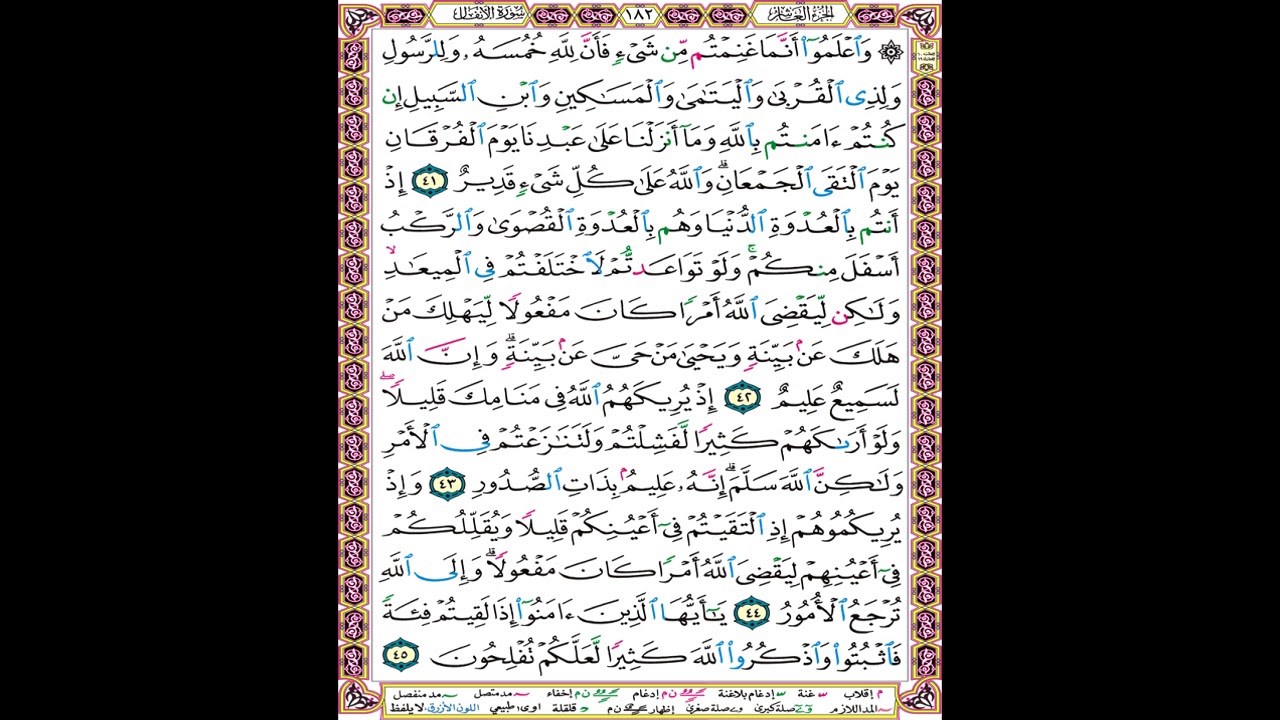 الجزء العاشر ١٨٢ سورة الأنفال
۞ وَٱعْلَمُوٓا۟ أَنَّمَا غَنِمْتُم مِّن شَىْءٍ فَأَنَّ لِلَّهِ خُمُسَهُۥ وَلِلرَّسُولِ
وَلِذِى ٱلْقُرْبَىٰ وَٱلْيَتَٰمَىٰ وَٱلْمَسَٰكِينِ وَٱبْنِ ٱلسَّبِيلِ إِن
كُنتُمْ ءَامَنتُم بِٱللَّهِ وَمَآ أَنزَلْنَا عَلَىٰ عَبْدِنَا يَوْمَ ٱلْفُرْقَانِ
يَوْمَ ٱلْتَقَى ٱلْجَمْعَانِ ۗ وَٱللَّهُ عَلَىٰ كُلِّ شَىْءٍ قَدِيرٌ ٤١ إِذْ
أَنتُم بِٱلْعُدْوَةِ ٱلدُّنْيَا وَهُم بِٱلْعُدْوَةِ ٱلْقُصْوَىٰ وَٱلرَّكْبُ
أَسْفَلَ مِنكُمْ ۚ وَلَوْ تَوَاعَدتُّمْ لَٱخْتَلَفْتُمْ فِى ٱلْمِيعَٰدِ ۙ
وَلَٰكِن لِّيَقْضِىَ ٱللَّهُ أَمْرًا كَانَ مَفْعُولًا لِّيَهْلِكَ مَنْ
هَلَكَ عَنۢ بَيِّنَةٍ وَيَحْيَىٰ مَنْ حَىَّ عَنۢ بَيِّنَةٍ ۗ وَإِنَّ ٱللَّهَ
لَسَمِيعٌ عَلِيمٌ ٤٢ إِذْ يُرِيكَهُمُ ٱللَّهُ فِى مَنَامِكَ قَلِيلًا ۖ
وَلَوْ أَرَىٰكَهُمْ كَثِيرًا لَّفَشِلْتُمْ وَلَتَنَٰزَعْتُمْ فِى ٱلْأَمْرِ
وَلَٰكِنَّ ٱللَّهَ سَلَّمَ ۗ إِنَّهُۥ عَلِيمٌۢ بِذَاتِ ٱلصُّدُورِ ٤٣ وَإِذْ
يُرِيكُمُوهُمْ إِذِ ٱلْتَقَيْتُمْ فِىٓ أَعْيُنِكُمْ قَلِيلًا وَيُقَلِّلُكُمْ
فِىٓ أَعْيُنِهِمْ لِيَقْضِىَ ٱللَّهُ أَمْرًا كَانَ مَفْعُولًا ۗ وَإِلَى ٱللَّهِ
تُرْجَعُ ٱلْأُمُورُ ٤٤ يَٰٓأَيُّهَا ٱلَّذِينَ ءَامَنُوٓا۟ إِذَا لَقِيتُمْ فِئَةً
فَٱثْبُتُوا۟ وَٱذْكُرُوا۟ ٱللَّهَ كَثِيرًا لَّعَلَّكُمْ تُفْلِحُونَ ٤٥
م إقلاب غنة إدغام بلاغنة ن م إدغام ن م إخفاء مد متصل مد منفصل
المد اللازم صلة كبرى صلة صغرى إظهار ن م قلقلة اوى: طبيعي اللون الأزرق: لا يلفظ